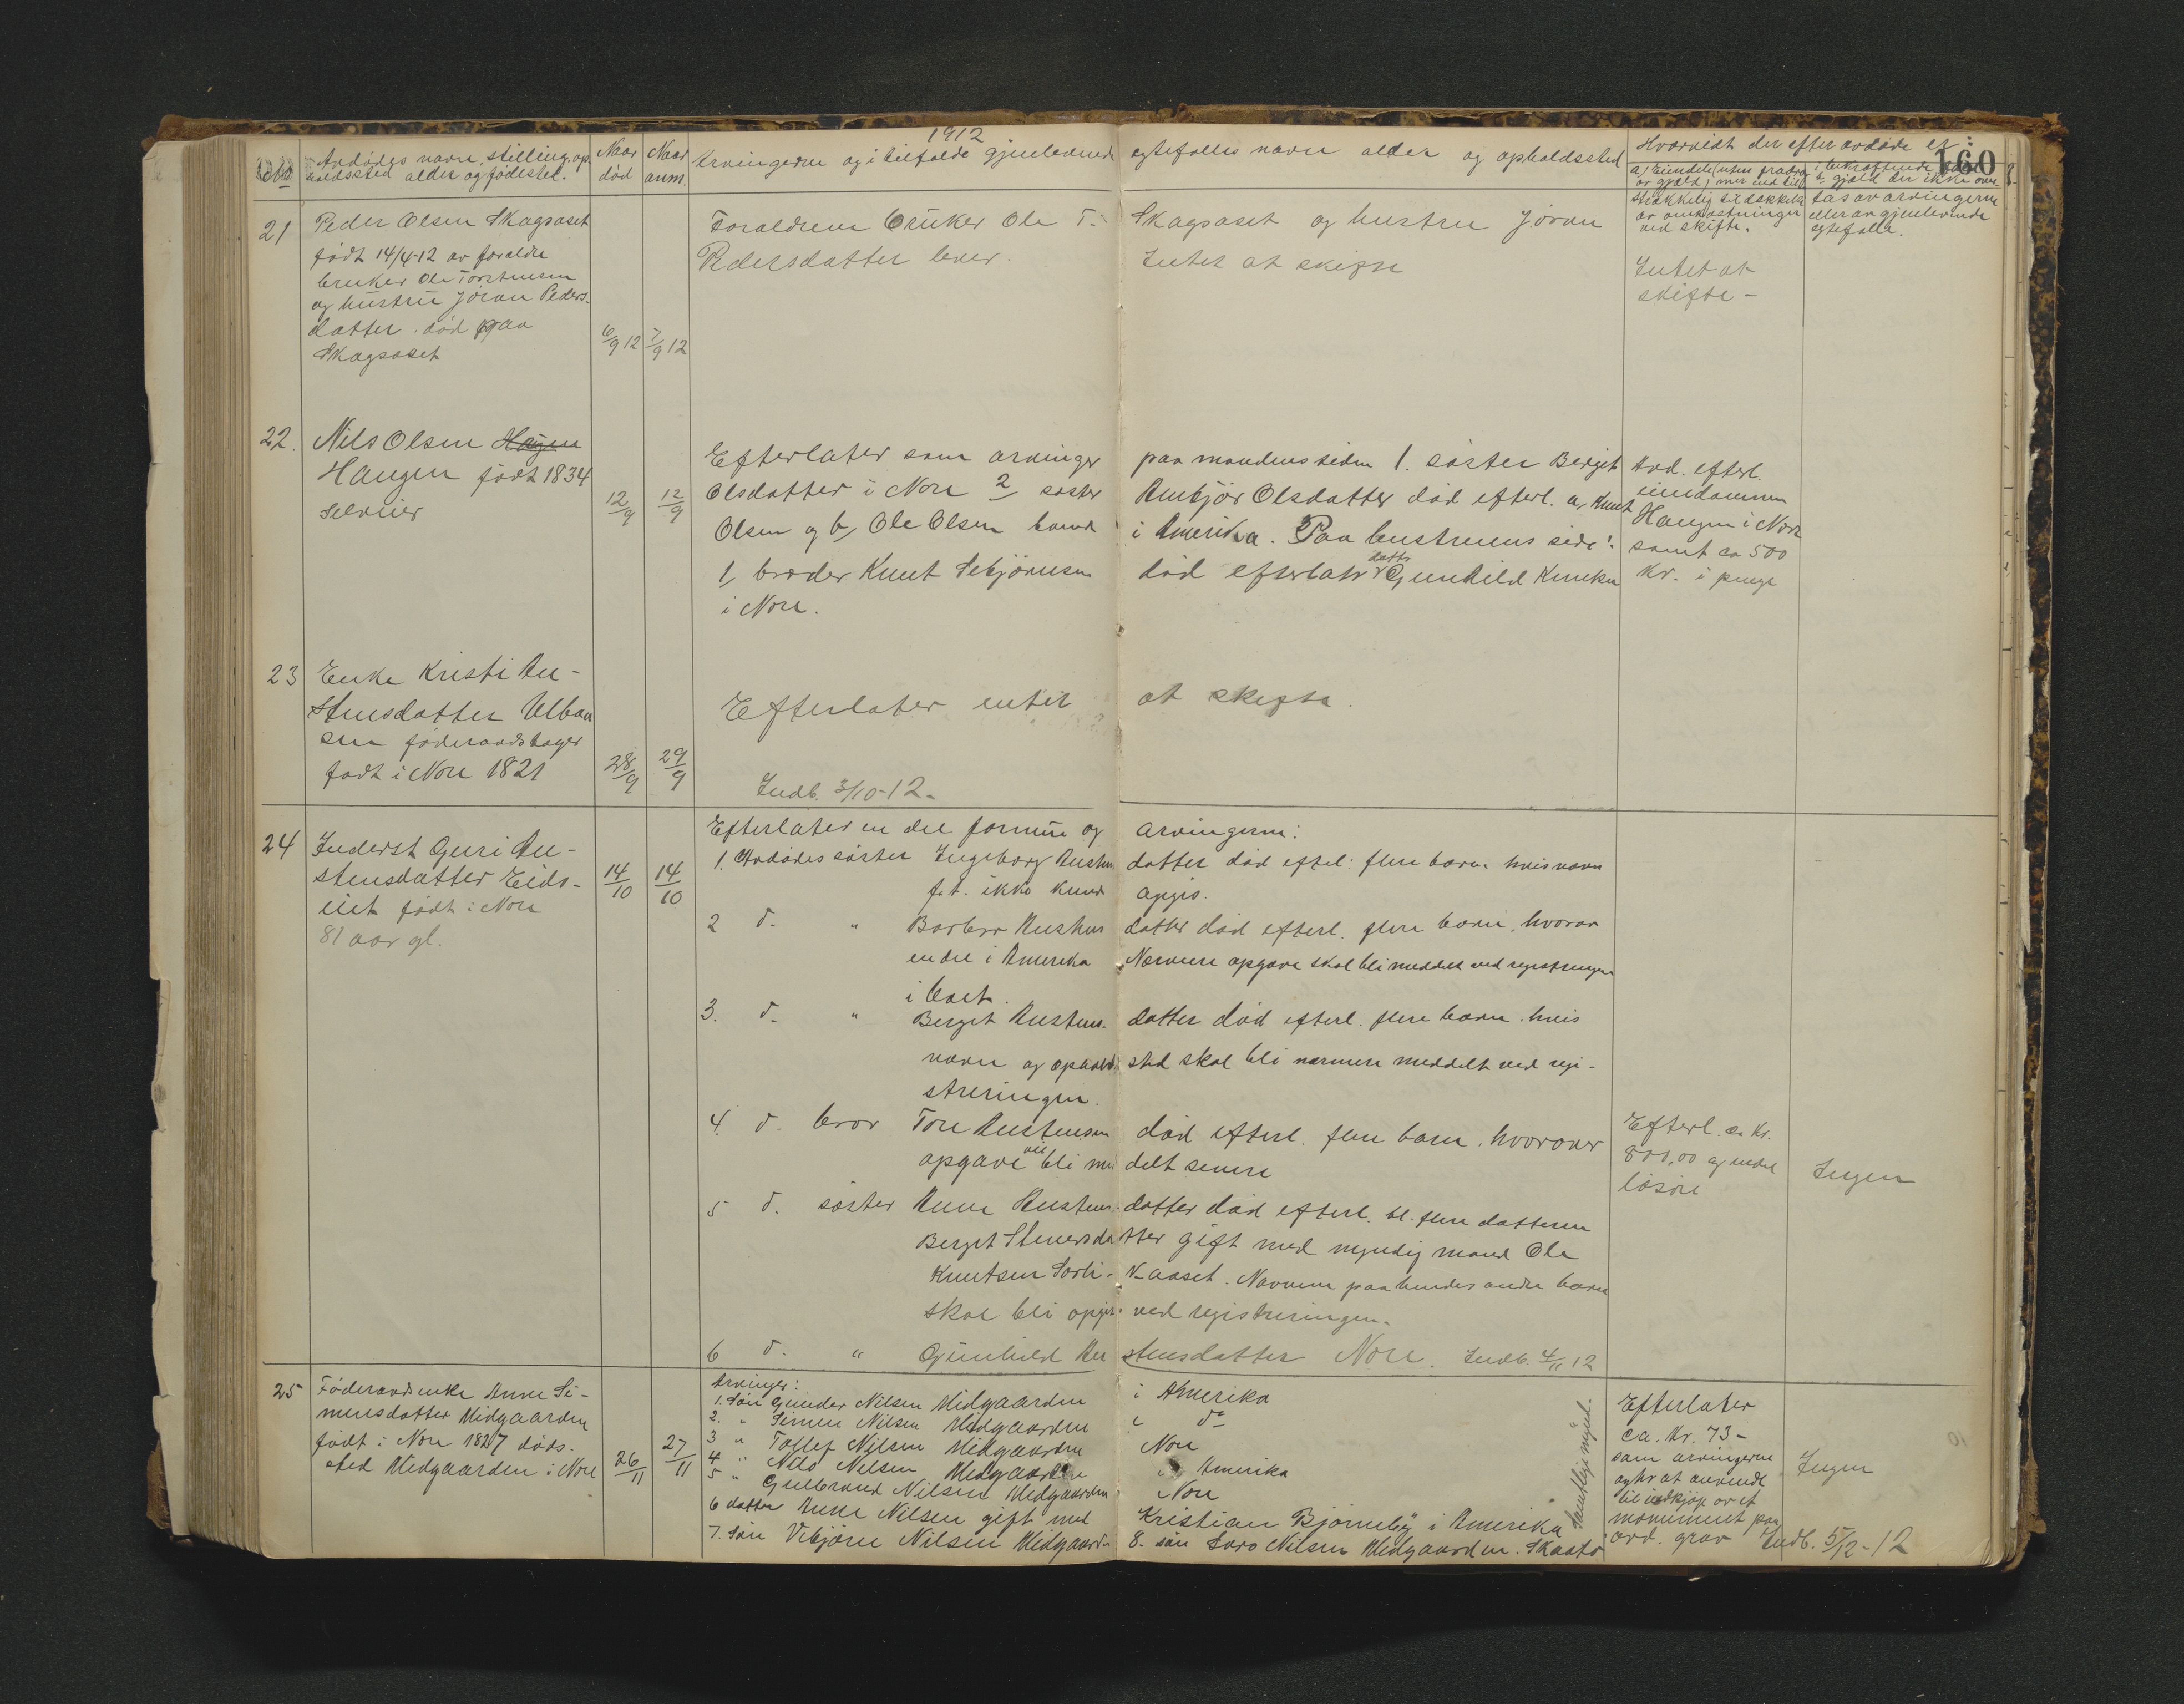 1912
160
No
Avdødes navn, stilling, op-
holdssted alder og fødested.
Naar
død
Naar
anm.
Arvingerne og i tilfælde gjenlevende egtefælles navn alder og opholdssted
Hvorvidt der efter avdøde er:
a, Eiendele (uten fradrag
av gjæld) mer end til
strækkelig til dekkelse
av omkostninger
ved skifte.
gjæld der ikke over-
tas av arvingerne
eller av gjenlevende
egtefælle.
21
Peder Olsen Skagsoset
født 14/4-12 av forældre
bruker Ole Torstensen
og hustru Jöran Peders-
datter. død paa
Skagsoset
6/9 12
7/9 12
Forældrene bruker Ole T. Skagsoset og hustru Jöran
Pedersdatter lever. Intet at skifte
Intet at
skifte -
22.
Nils Olsen Haugen
Haugen født 1834
Selveier
12/9
12/9
Efterlater som arvinger paa mandens siden 1. søster Berget
Olsdatter i Nore 2 søster Anbjør Olsdatter død efterl. a, Knut
Olsen og b, Ole Olsen i Amerika. Paa hustruens side:
1, broder Knut Sebjörnsen død efterlater datter Gunhild Knutsen
i Nore.
Avd. efterl.
eiendommen
Haugen i Nore
samt ca 500
kr. i penge
23
Enke Kristi Au-
stensdatter Ulbaa
sen føderaadstager
født i Nore 1821
28/9
29/9
Efterlater intet at skifte.
Indb. 3/10-12-
24
Inderst Guri Au-
stensdatter Eids-
født i Nore
81 aar gl.
14/10
14/10
Efterlater en del formue og arvingerne:
1. Avdødes søster Ingeborg Austensdatter død efterl. flere barn hvis navn
f.t. ikke kunde opgis.
2 d. " Barbro Austensdatter død efterl. flere barn, hvorav
en del i Amerika Nærmere opgave skal bli meddelt ved registreringen
i boet.
3. d. " Berget Austens- datter død efterl. flere barn. hvis
navn og opholdssted skal bli nærmere meddelt ved regi-
streringen.
4. d. bror Tore Austensen død efterl. flere barn. hvorover
opgave vil bli meddelt senere
5 d. søster Anne Austens- datter død efterl. bl. flere datteren
Berget Steversdatter gift med myndig mand Ole
Knutsen Navnene paa hendes andre barn
skal bli opgit ved registreringen.
6 d. " Gunhild Austensdatter Nore. Indb. 4/11 12
Efterl. ca kr.
800,00 og endel
løsøre
Ingen
25
Føderaadsenke Anne Si-
mensdatter Midgaarden
født i Nore 1827 døds-
sted Midgaarden i Nore
26/11
27/11
Arvinger:
1. Søn Gunder Nilsen Midgaarden i Amerika
2. " Simen Nilsen Midgaarden i do
3 " Tollef Nilsen Midgaarden Nore
4 " Nils Nilsen Midgaarden i Amerika
5 " Gulbrand Nilsen Midgaarden Nore
6 datter Anne Nilsen gift med Kristian Björneby i Amerika
7. Søn Vebjörn Nilsen Midgaard- 8. søn Lars Nilsen Midgaarden. Skaatø
Samtlige myndi.
Efterlater
ca. kr. 73-
som arvingerne
agter at anvende
til indkjøp av et
monument paa
avd. grav
Ingen
Indb. 5/12-12